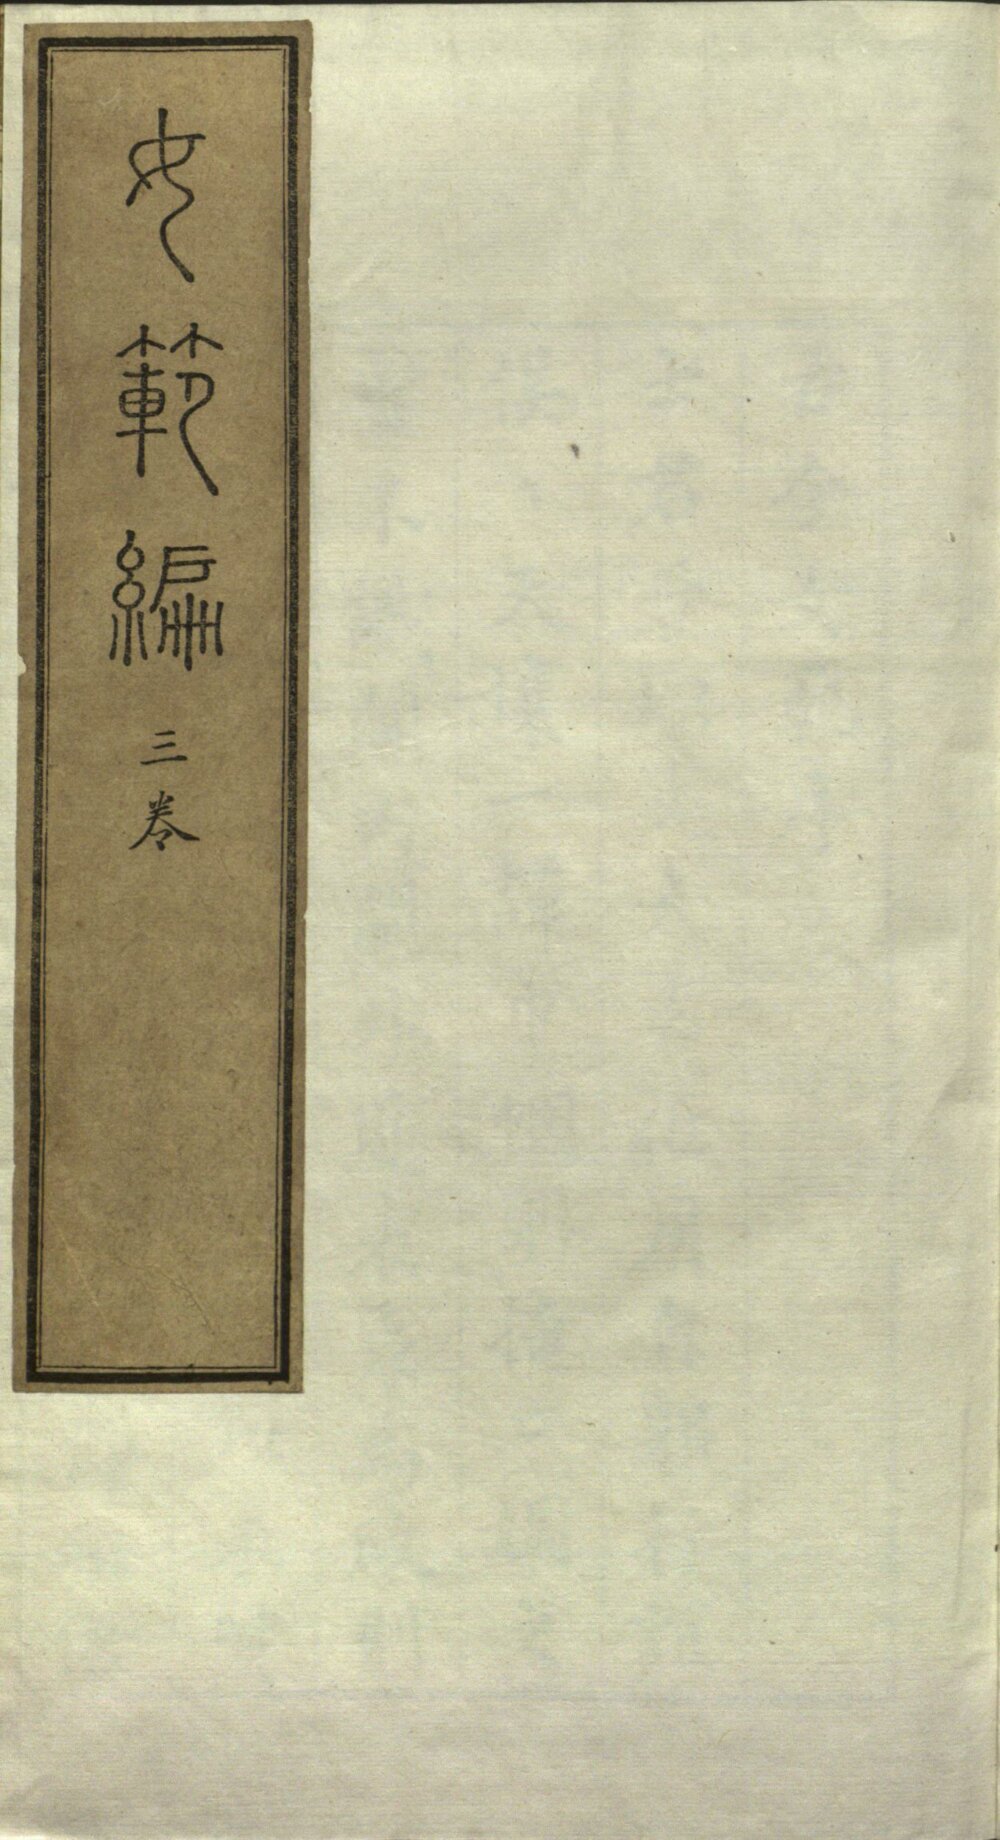 女範編
三卷